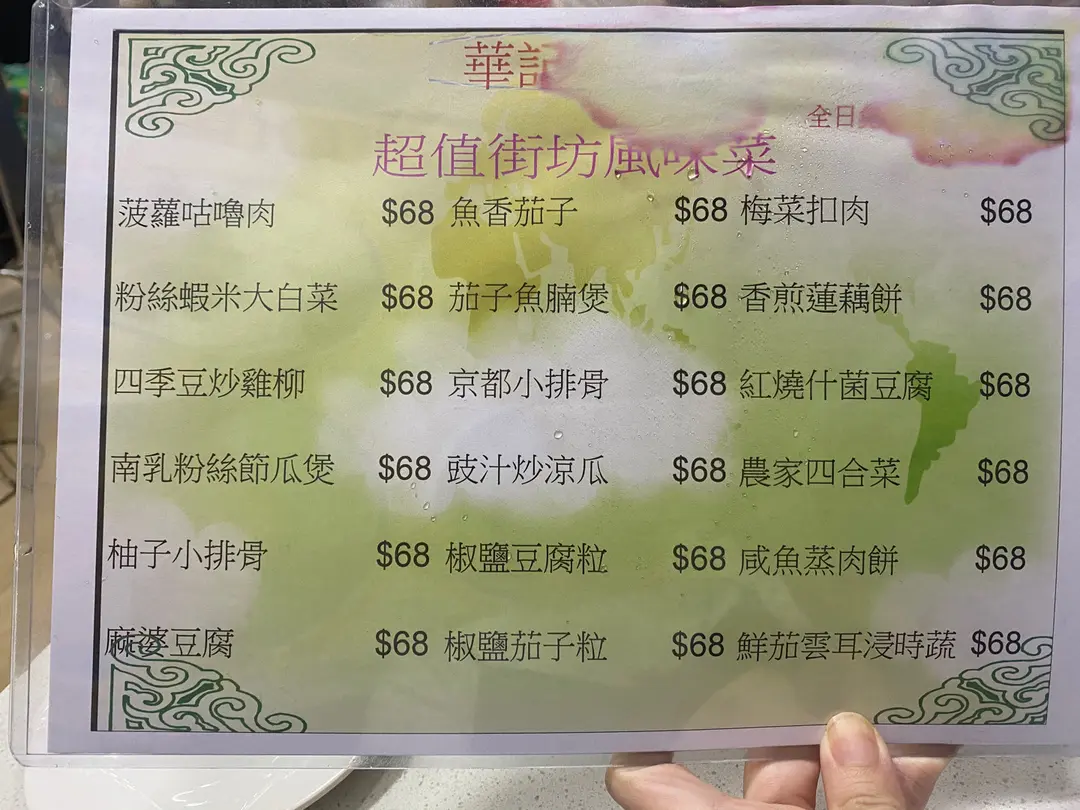 華記
全日
超值街坊風味菜
菠蘿咕嚕肉 $68 魚香茄子 $68 梅菜扣肉 $68
粉絲蝦米大白菜 $68 茄子魚腩煲 $68 香煎蓮藕餅 $68
四季豆炒雞柳 $68 京都小排骨 $68 紅燒什菌豆腐 $68
南乳粉絲節瓜煲 $68 豉汁炒涼瓜 $68 農家四合菜 $68
柚子小排骨 $68 椒鹽豆腐粒 $68 咸魚蒸肉餅 $68
麻婆豆腐 $68 椒鹽茄子粒 $68 鮮茄雲耳浸時蔬 $68